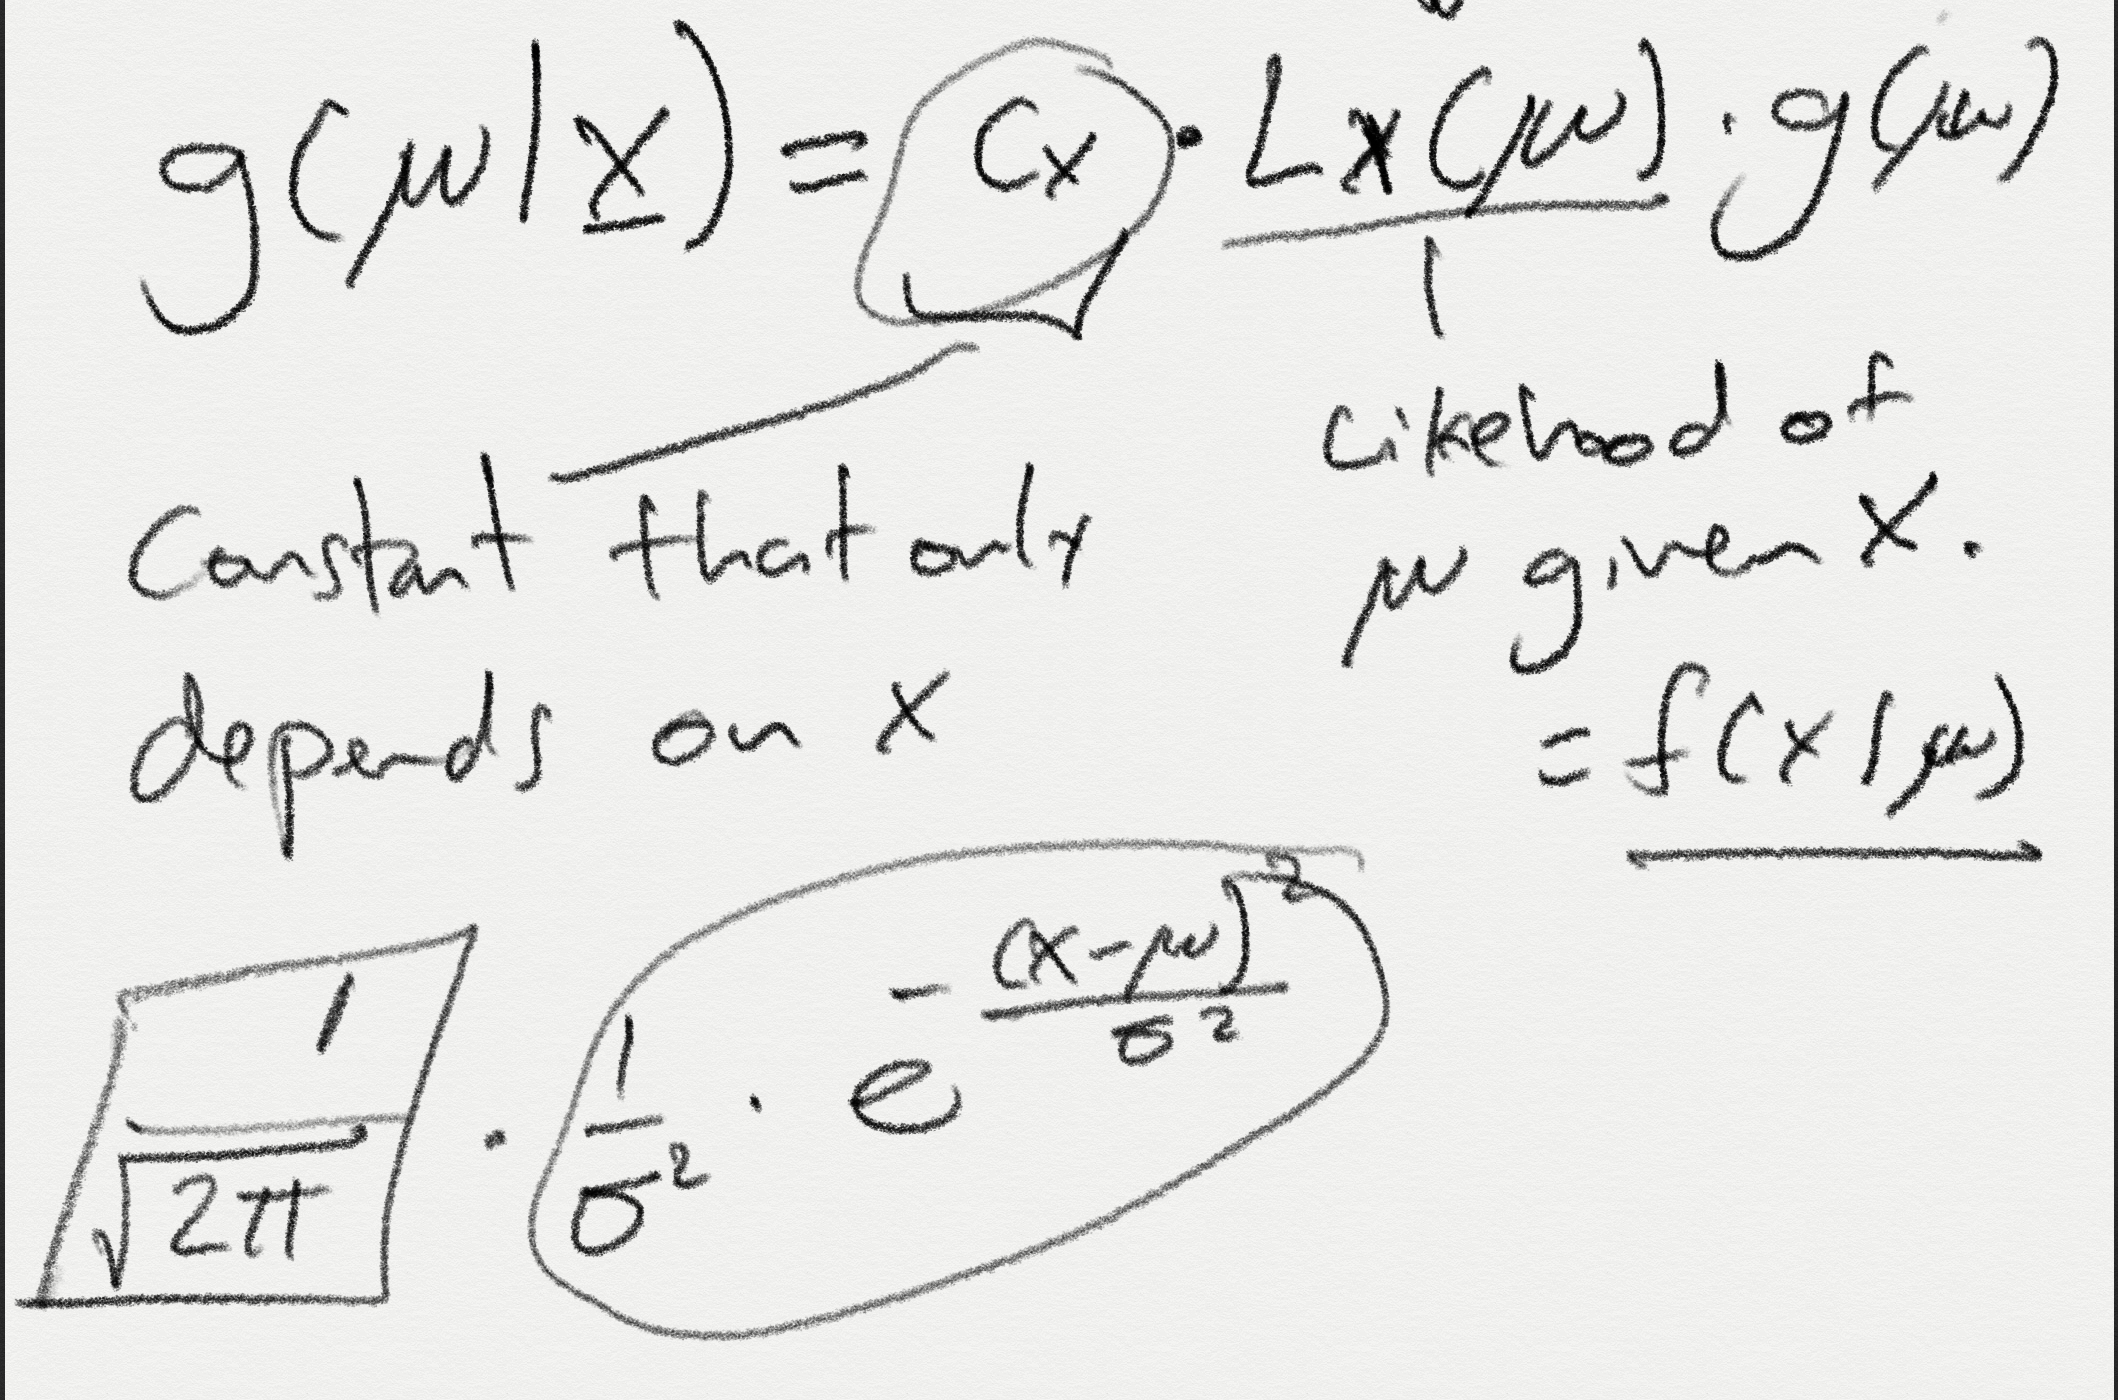 g(μ|x) = Cx · Lx(μ) · g(μ)
Constant that only
depends on x
Likehood of
μ given x.
= f(x|μ)
1/√2π · 1/σ² · e^-(x-μ)²/σ²